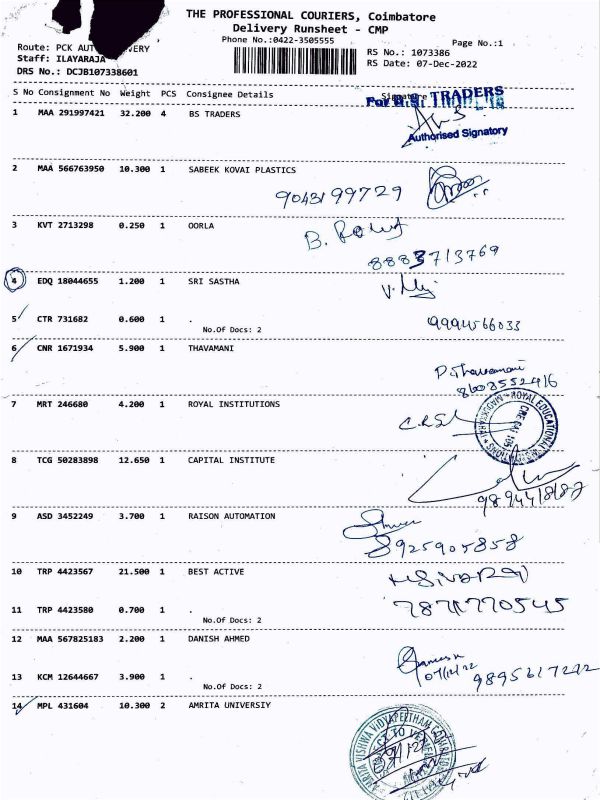 THE PROFESSIONAL COURIERS, Coimbatore
Delivery Runsheet - CMP
Phone No.:0422-3505555
Page No.:1
Route: PCK AUTO DELIVERY
Staff: ILAYARAJA
DRS No.: DCJB107338601
RS No.: 1073386
RS Date: 07-Dec-2022
S No Consignment No Weight PCS Consignee Details Signature
1 MAA 291997421 32.200 4 BS TRADERS
TRADERS
Authorised Signatory
2 MAA 566763950 10.300 1 SABEEK KOVAI PLASTICS
9043199729
3 KVT 2713298 0.250 1 OORLA
8883713769
4 EDQ 18044655 1.200 1 SRI SASTHA
5 CTR 731682 0.600 1 .
No.Of Docs: 2
9994566033
6 CNR 1671934 5.900 1 THAVAMANI
P.Thavamani
8608552416
7 MRT 246680 4.200 1 ROYAL INSTITUTIONS
8 TCG 50283898 12.650 1 CAPITAL INSTITUTE
9 ASD 3452249 3.700 1 RAISON AUTOMATION
8925905858
10 TRP 4423567 21.500 1 BEST ACTIVE
11 TRP 4423580 0.700 1 .
No.Of Docs: 2
7871770545
12 MAA 567825183 2.200 1 DANISH AHMED
07/12/22
13 KCM 12644667 3.900 1 .
No.Of Docs: 2
14 MPL 431604 10.300 2 AMRITA UNIVERSIY
AMRITA VISHWA VIDYAPEETHAM